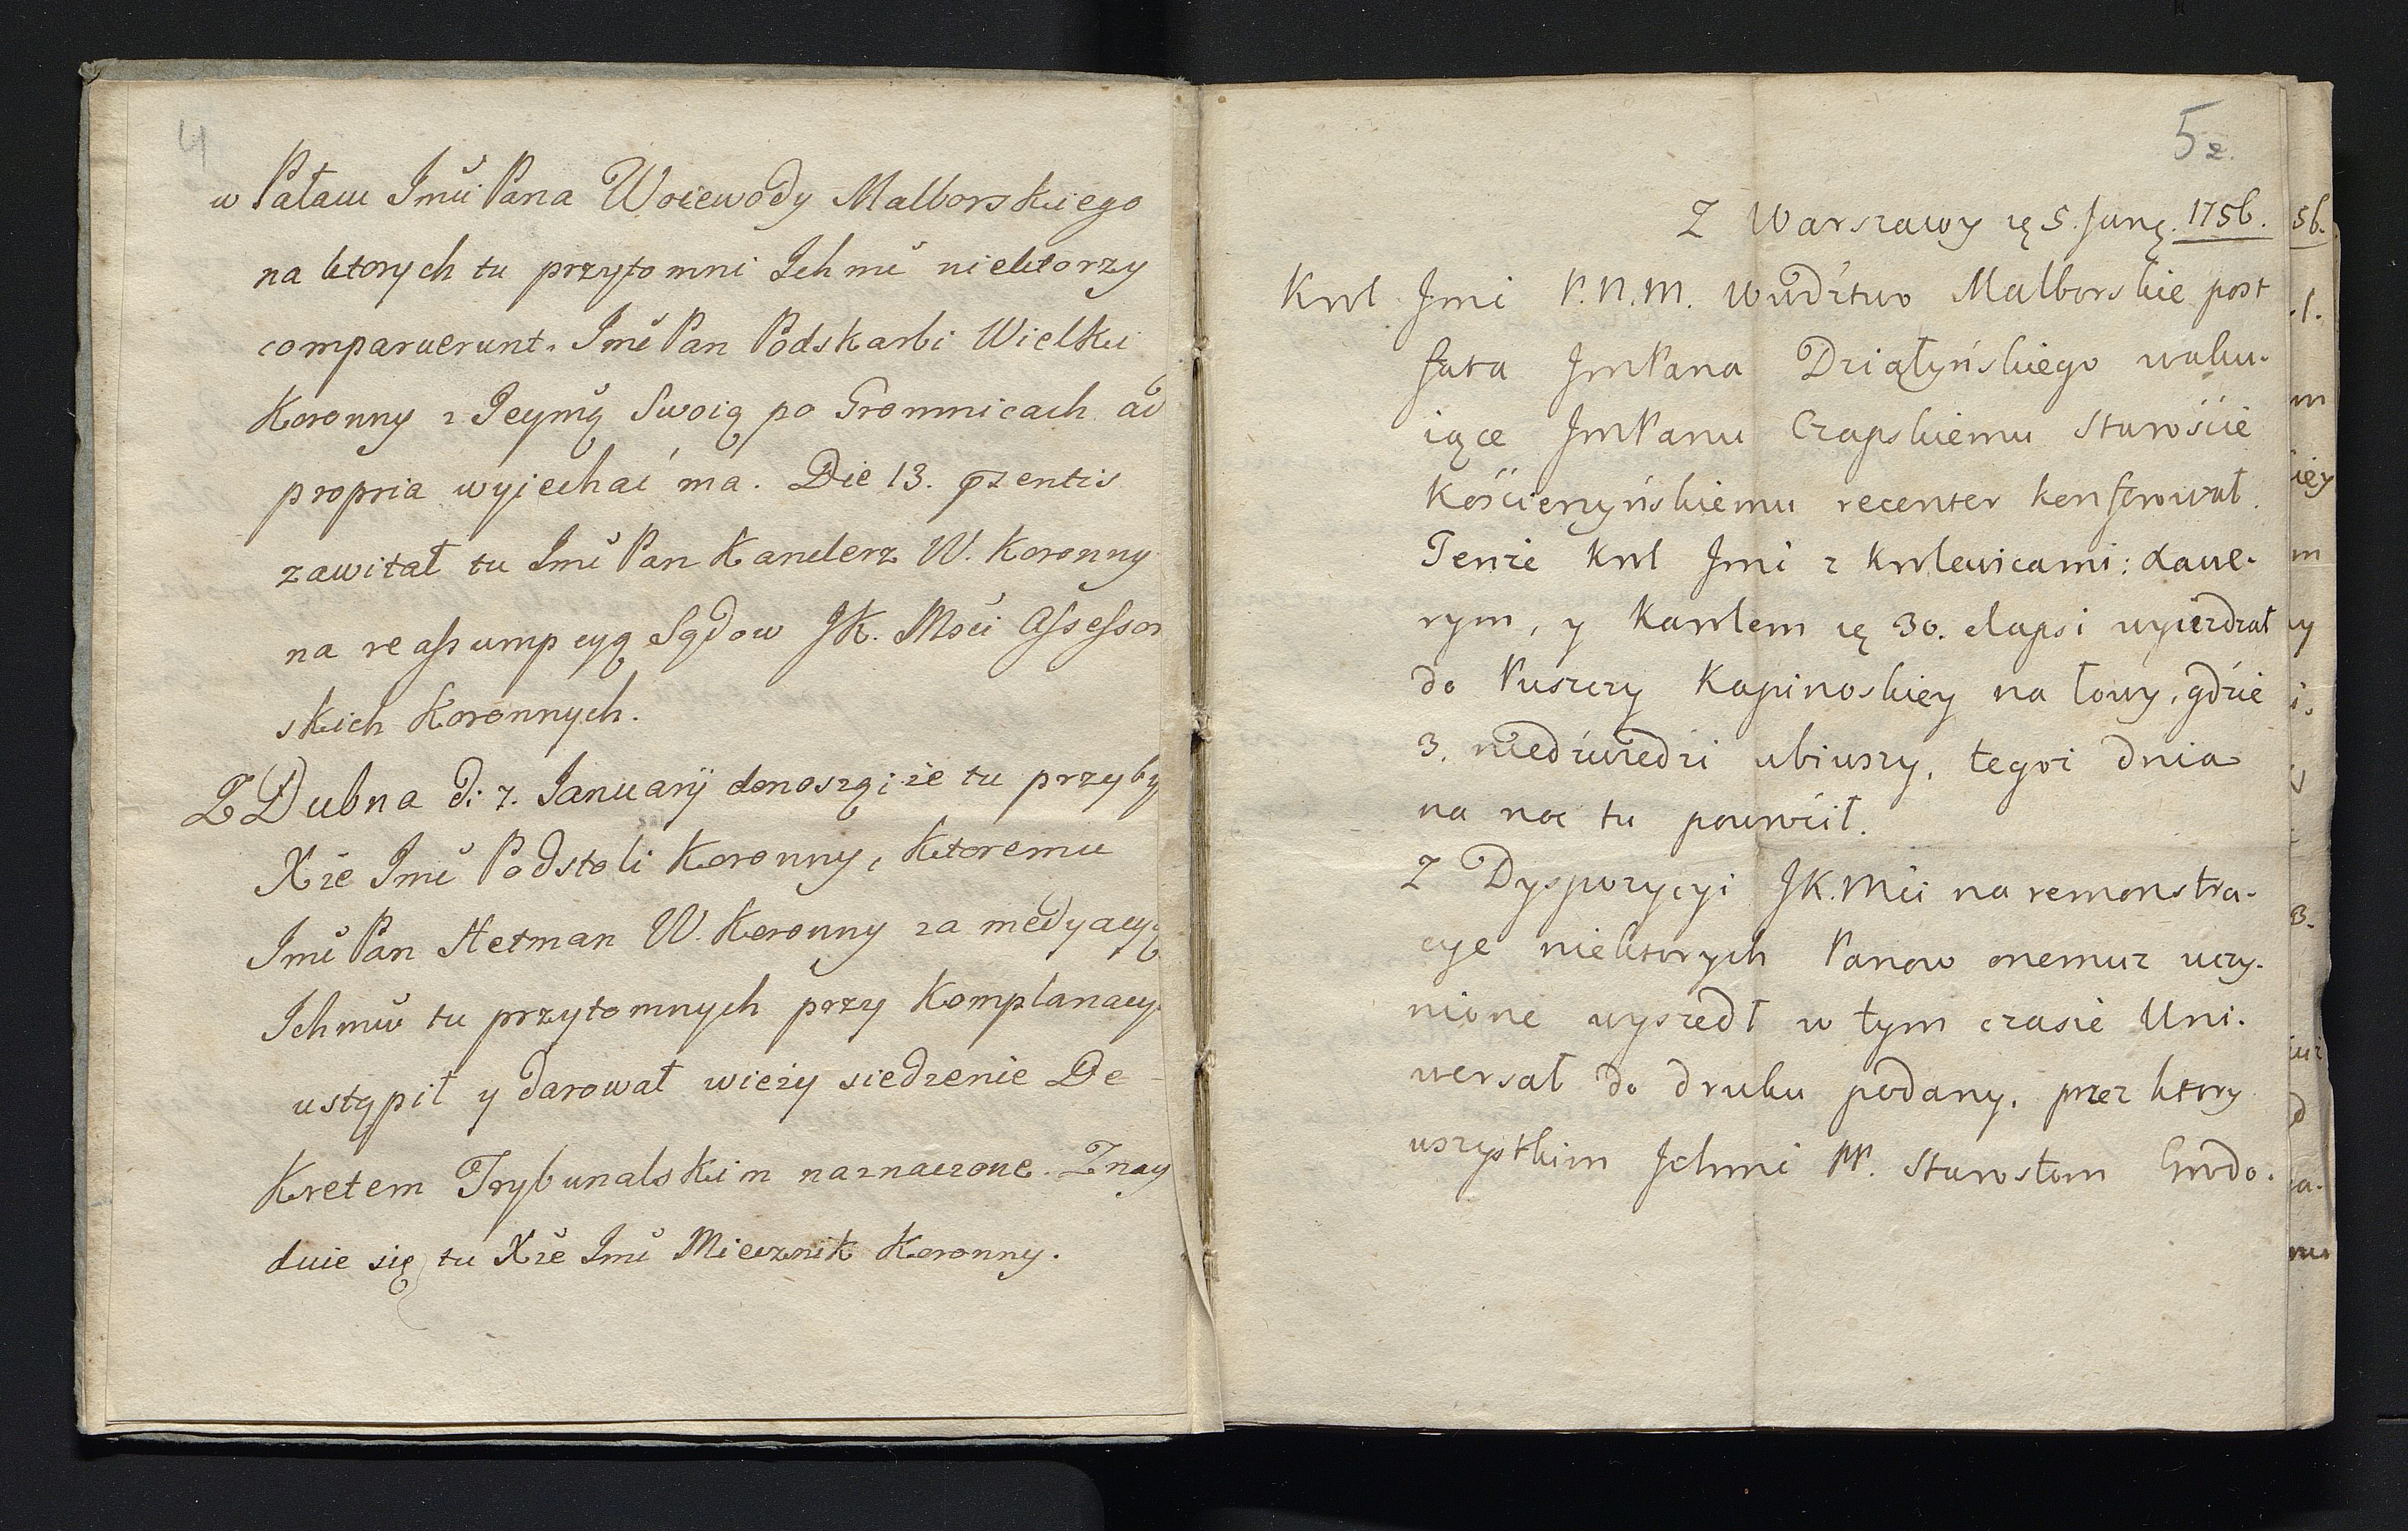 4
w Pałacu Jmći Pana Woiewody Malborskiego
na ktorych tu przytomni Ichmć niektorzy
comparuerunt. Jmć Pan Podskarbi Wielki
Koronny z Jeymćą Swoią po Gromnicach ad
propria wyjechać ma. Die 13. pzentis
zawitał tu Jmć Pan Kanclerz W. Koronny
na reassumpcyą Sądow JK. Mści Assessor
skich Koronnych.
Z Dubna d: 7. Januarij donoszą, że tu przyby
Xże Jmć Podstoli Koronny, ktoremu
Jmć Pan Hetman W. Koronny za medyacyą
Ichmćw tu przytomnych przy Komplanacy
ustąpił y darował wieży siedzenie De-
kretem Trybunalskim naznaczone. Znay
duie się tu Xże Jmć Miecznik Koronny.
5 2.
Z Warszawy 5. 1756.
Krol Jmć P.N.M. Wdztwo Malborskie post
fata JmPana Działyńskiego waku-
iące JmPanu Czapskiemu Staroście
Kościerzyńskiemu recenter konferował.
Tenże Krol Jmć z Krolewicami: Xawe-
rym, y Karolem 30. elapsi wyieżdzał
do Puszczy Kapinoskiey na łowy, gdzie
3. niedźwiedzi ubiwszy, tegoż dnia
na noc tu powrócił.
Z Dyspozycyi JK.Mći na remonstra-
cye niektorych Panow onemuz uczy-
nione wyszedł w tym czasie Uni-
wersał do druku podany, przez ktory
wszystkim Ichmć PP. Starostom Grodo-